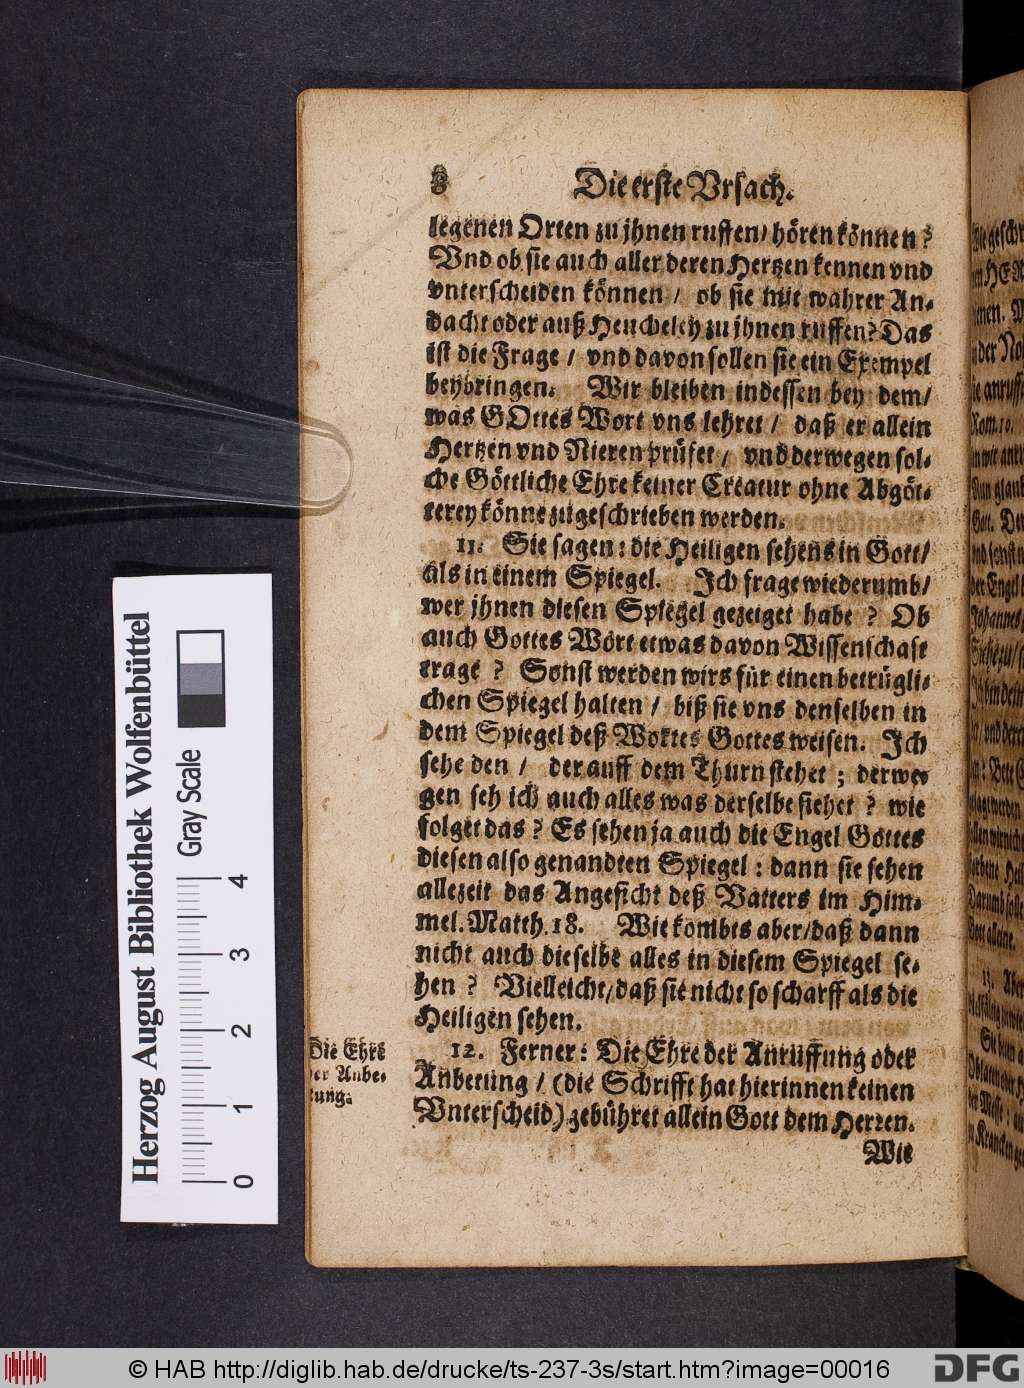 8 Die erste Vrsach.
legenen Orten zu jhnen ruffen/ hören können?
Vnd ob sie auch aller deren Hertzen kennen vnd
vnterscheiden können / ob sie mit wahrer An-
dacht oder auß Heucheley zu jhnen ruffen? Das
ist die Frage / vnd davon sollen sie ein Exempel
beybringen. Wir bleiben indessen bey dem/
was GOttes Wort vns lehret / daß er allein
Hertzen vnd Nieren prüfet / vnd derwegen sol-
che Göttliche Ehre keiner Creatur ohne Abgöt-
terey könne zugeschrieben werden.
11. Sie sagen: die Heiligen sehens in Gott/
als in einem Spiegel. Ich frage wiederumb/
wer jhnen diesen Spiegel gezeiget habe ? Ob
auch Gottes Wort etwas davon Wissenschaft
trage ? Sonst werden wirs für einen betrügli-
chen Spiegel halten / biß sie vns denselben in
dem Spiegel deß Wortes Gottes weisen. Ich
sehe den / der auff dem Thurn stehet ; derwe-
gen seh ich auch alles was derselbe siehet ? wie
folget das ? Es sehen ja auch die Engel Gottes
diesen also genandten Spiegel : dann sie sehen
allezeit das Angesicht deß Vatters im Him-
mel. Matth. 18. Wie kombts aber/ daß dann
nicht auch dieselbe alles in diesem Spiegel se-
hen ? Vielleicht/ daß sie nicht so scharff als die
Heiligen sehen.
Die Ehre
der Anbe-
tung.
12. Ferner : Die Ehre der Anruffung oder
Anbetung / (die Schrifft hat hierinnen keinen
Vnterscheid) gebühret allein Gott dem Herren.
Wie
Herzog August Bibliothek Wolfenbüttel
Gray Scale
0 1 2 3 4
© HAB http://diglib.hab.de/drucke/ts-237-3s/start.htm?image=00016
DFG